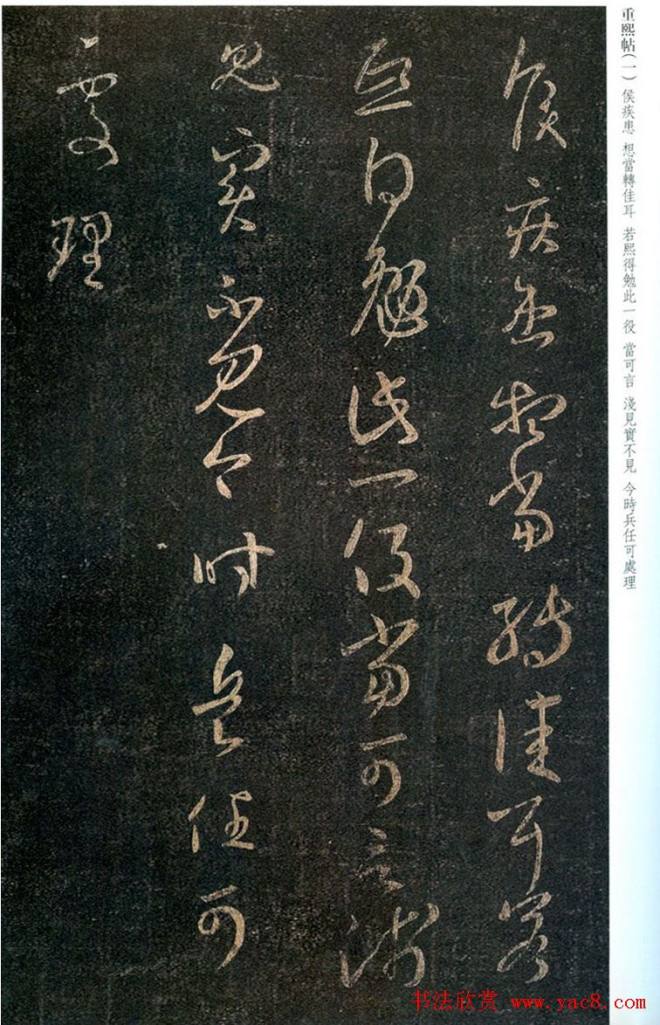 重熙帖（一） 侯疾患 想當轉佳耳 若熙得勉此一役 當可言 淺見實不見 今時兵任可處理
侯疾患想當轉佳耳若
熙得勉此一役當可言淺
見實不見今時兵任可
處理
书法欣赏 www.yac8.com